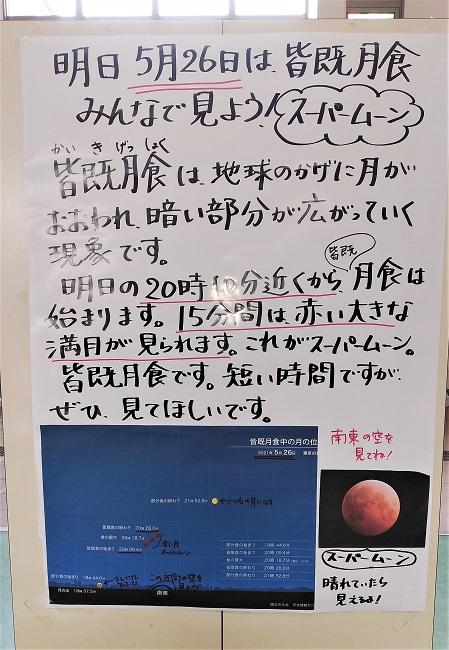 明日 5月26日は、皆既月食
みんなで見よう! スーパームーン
かいきげっしょく
皆既月食は、地球のかげに月が
おおわれ、暗い部分が広がっていく
現象です。
皆既
明日の20時10分近くから、月食は
始まります。15分間は、赤い大きな
満月が見られます。これがスーパームーン。
皆既月食です。短い時間ですが、
ぜひ、見てほしいです。
皆既月食中の月の位
2021年5月26日
部分食の終わり 21時52.8分
皆既食の終わり 20時28.0分
食の最大 20時18.7分
皆既食の始まり 20時09.4分
赤い月
スーパームーン
部分食の始まり 18時44.6分
月の出 18時37.5分
この方向の空を
南東
部分食の始まり 18時44.6分
皆既食の始まり 20時09.4分
食の最大 20時18.7分
皆既食の終わり 20時28.0分
部分食の終わり 21時52.8分
国立天文台 天文情報セン
南東の空を
見てね!
スーパームーン
晴れていたら
見えるよ!